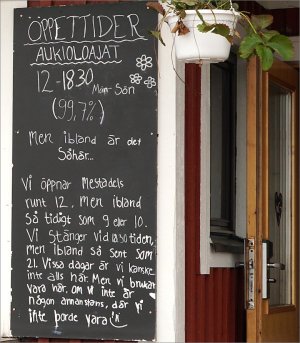 ÖPPETTIDER
AUKIOLOAJAT
12-1830 Mån-Sön
(99,7%)
Men ibland är det
Såhär...
Vi öppnar Mestadels
runt 12, men ibland
så tidigt som 9 eller 10.
Vi Stänger vid 1830 tiden,
men ibland så sent som
21. Vissa dagar är vi kanske
inte alls här. Men vi brukar
vara här, om vi inte är
någon annanstans, där vi
inte borde vara